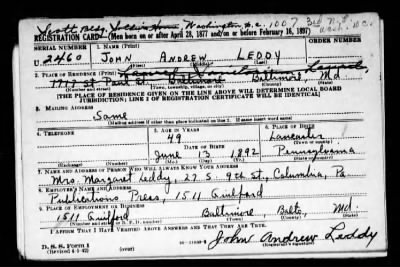 Scott Bldg Soldiers Home Washington D.C. 1007 3rd
REGISTRATION CARD—(Men born on or after April 28, 1877 and on or before February 16, 1897)
SERIAL NUMBER 1. NAME (Print)
U 2460 JOHN ANDREW LEDDY
(First) (Middle) (Last)
2. PLACE OF RESIDENCE (Print)
St Paul St. Baltimore Baltimore, Md
(Number and street) (Town, township, village, or city) (County) (State)
[THE PLACE OF RESIDENCE GIVEN ON THE LINE ABOVE WILL DETERMINE LOCAL BOARD
JURISDICTION; LINE 2 OF REGISTRATION CERTIFICATE WILL BE IDENTICAL]
3. MAILING ADDRESS
Same
[Mailing address if other than place indicated on line 2. If same insert word same]
4. TELEPHONE 5. AGE IN YEARS 6. PLACE OF BIRTH
49 Lancaster
DATE OF BIRTH (Town or county)
June 13 1892 Pennsylvania
(Exchange) (Number) (Mo.) (Day) (Yr.) (State or country)
7. NAME AND ADDRESS OF PERSON WHO WILL ALWAYS KNOW YOUR ADDRESS
Mrs. Margaret Leddy, 27 S. 9th St, Columbia, Pa
8. EMPLOYER'S NAME AND ADDRESS
Publications Press, 1511 Guilford
9. PLACE OF EMPLOYMENT OR BUSINESS
1511 Guilford Baltimore, Balto, Md.
(Number and street or R. F. D. number) (Town) (County) (State)
I AFFIRM THAT I HAVE VERIFIED ABOVE ANSWERS AND THAT THEY ARE TRUE.
D. S. S. Form 1
(Revised 4-1-42) (over) John Andrew Leddy